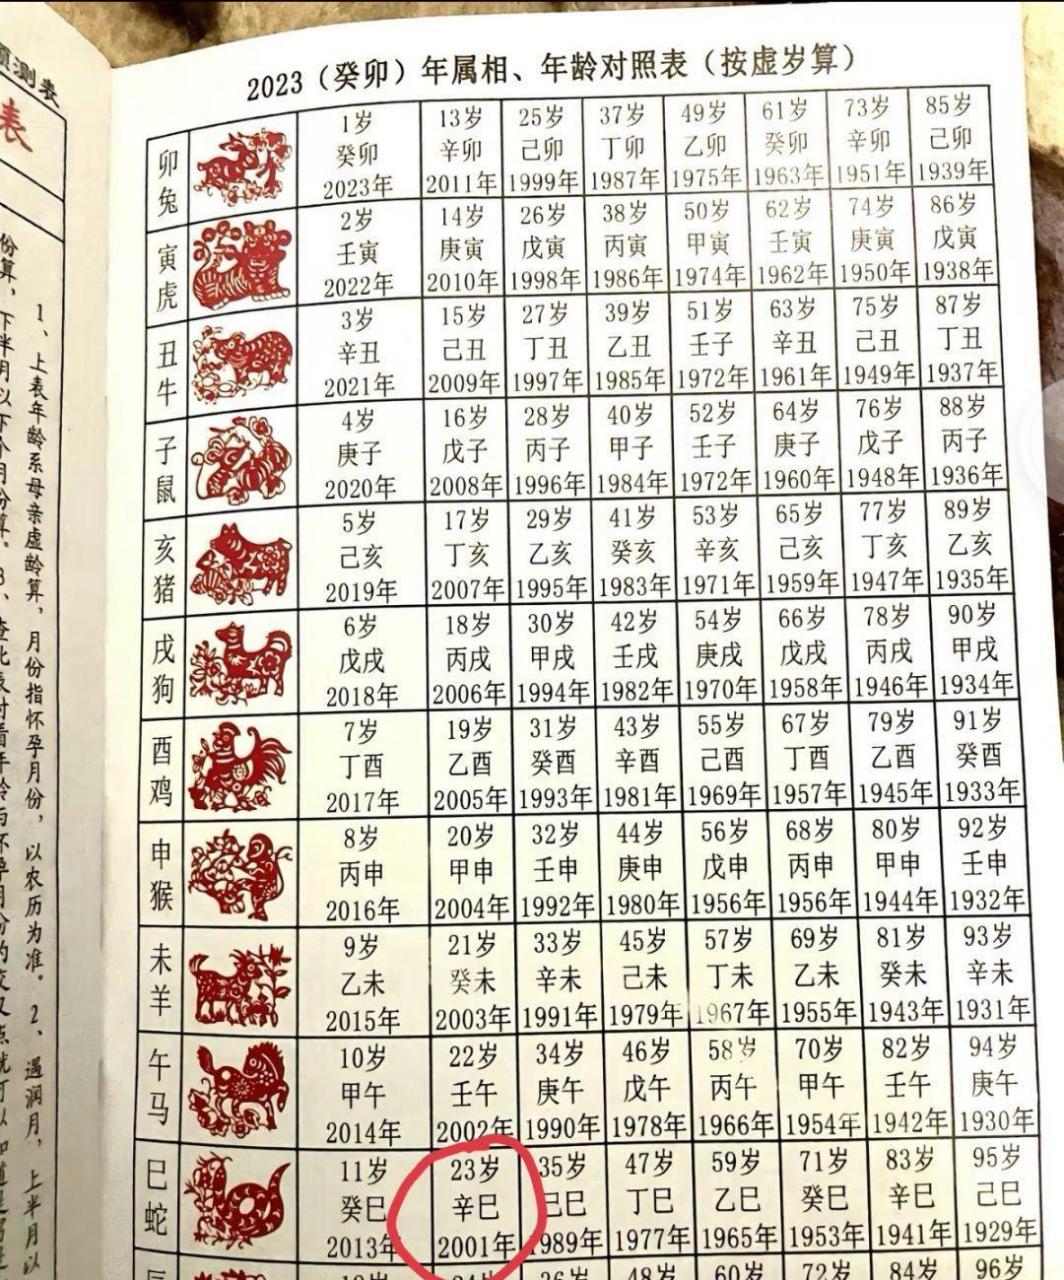 测表
表
1、上表年龄系母亲虚龄算，月份指怀孕月份，以农历为准。2、遇润月，上半月以
份算，下半月以下个月份算。3、查此表时看年龄与怀孕月份的交叉点就可以知道是
2023（癸卯）年属相、年龄对照表（按虚岁算）
卯兔
1岁 13岁 25岁 37岁 49岁 61岁 73岁 85岁
癸卯 辛卯 己卯 丁卯 乙卯 癸卯 辛卯 己卯
2023年 2011年 1999年 1987年 1975年 1963年 1951年 1939年
寅虎
2岁 14岁 26岁 38岁 50岁 62岁 74岁 86岁
壬寅 庚寅 戊寅 丙寅 甲寅 壬寅 庚寅 戊寅
2022年 2010年 1998年 1986年 1974年 1962年 1950年 1938年
丑牛
3岁 15岁 27岁 39岁 51岁 63岁 75岁 87岁
辛丑 己丑 丁丑 乙丑 壬子 辛丑 己丑 丁丑
2021年 2009年 1997年 1985年 1972年 1961年 1949年 1937年
子鼠
4岁 16岁 28岁 40岁 52岁 64岁 76岁 88岁
庚子 戊子 丙子 甲子 壬子 庚子 戊子 丙子
2020年 2008年 1996年 1984年 1972年 1960年 1948年 1936年
亥猪
5岁 17岁 29岁 41岁 53岁 65岁 77岁 89岁
己亥 丁亥 乙亥 癸亥 辛亥 己亥 丁亥 乙亥
2019年 2007年 1995年 1983年 1971年 1959年 1947年 1935年
戌狗
6岁 18岁 30岁 42岁 54岁 66岁 78岁 90岁
戊戌 丙戌 甲戌 壬戌 庚戌 戊戌 丙戌 甲戌
2018年 2006年 1994年 1982年 1970年 1958年 1946年 1934年
酉鸡
7岁 19岁 31岁 43岁 55岁 67岁 79岁 91岁
丁酉 乙酉 癸酉 辛酉 己酉 丁酉 乙酉 癸酉
2017年 2005年 1993年 1981年 1969年 1957年 1945年 1933年
申猴
8岁 20岁 32岁 44岁 56岁 68岁 80岁 92岁
丙申 甲申 壬申 庚申 戊申 丙申 甲申 壬申
2016年 2004年 1992年 1980年 1956年 1956年 1944年 1932年
未羊
9岁 21岁 33岁 45岁 57岁 69岁 81岁 93岁
乙未 癸未 辛未 己未 丁未 乙未 癸未 辛未
2015年 2003年 1991年 1979年 1967年 1955年 1943年 1931年
午马
10岁 22岁 34岁 46岁 58岁 70岁 82岁 94岁
甲午 壬午 庚午 戊午 丙午 甲午 壬午 庚午
2014年 2002年 1990年 1978年 1966年 1954年 1942年 1930年
巳蛇
11岁 23岁 35岁 47岁 59岁 71岁 83岁 95岁
癸巳 辛巳 己巳 丁巳 乙巳 癸巳 辛巳 己巳
2013年 2001年 1989年 1977年 1965年 1953年 1941年 1929年
12岁 24岁 36岁 48岁 60岁 72岁 84岁 96岁